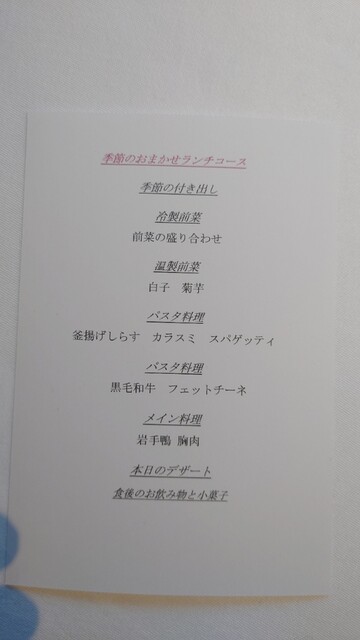 季節のおまかせランチコース
季節の付き出し
冷製前菜
前菜の盛り合わせ
温製前菜
白子　菊芋
パスタ料理
釜揚げしらす　カラスミ　スパゲッティ
パスタ料理
黒毛和牛　フェットチーネ
メイン料理
岩手鴨 胸肉
本日のデザート
食後のお飲み物と小菓子